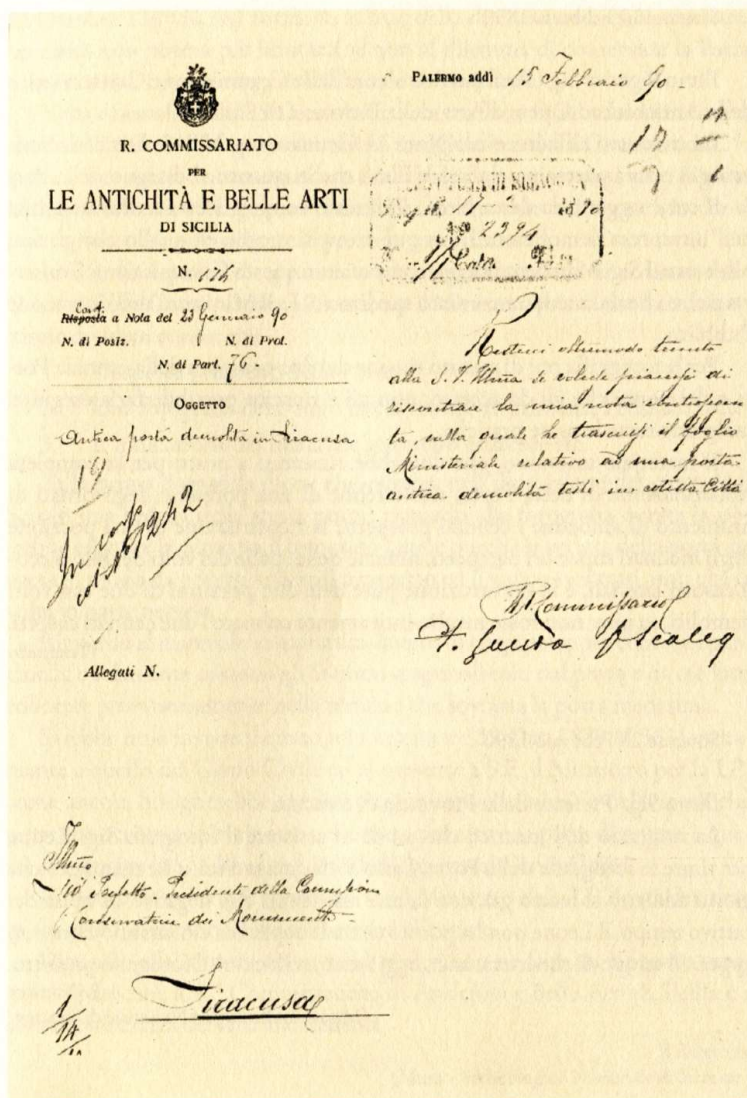 R. COMMISSARIATO
PER
LE ANTICHITÀ E BELLE ARTI
DI SICILIA
N. 176
Risposta a Nota del 23 Gennaio 90
N. di Posiz. N. di Prot.
N. di Part. 76
OGGETTO
Antica porta demolita in Siracusa
19
Allegati N.
PALERMO addì 15 Febbraio 90
17
17-2 1890
2394
Resterei oltremodo tenuto
alla S. V. Illma se volesse piacersi di
riscontrare la mia nota contropon
ta, colla quale le trascrissi il foglio
Ministeriale relativo ad una porta
antica demolita testè in cotesta Città
Il R. Commissario
Illmo
Sig Prefetto - Presidente della Commissione
Conservatrice dei Monumenti
Siracusa